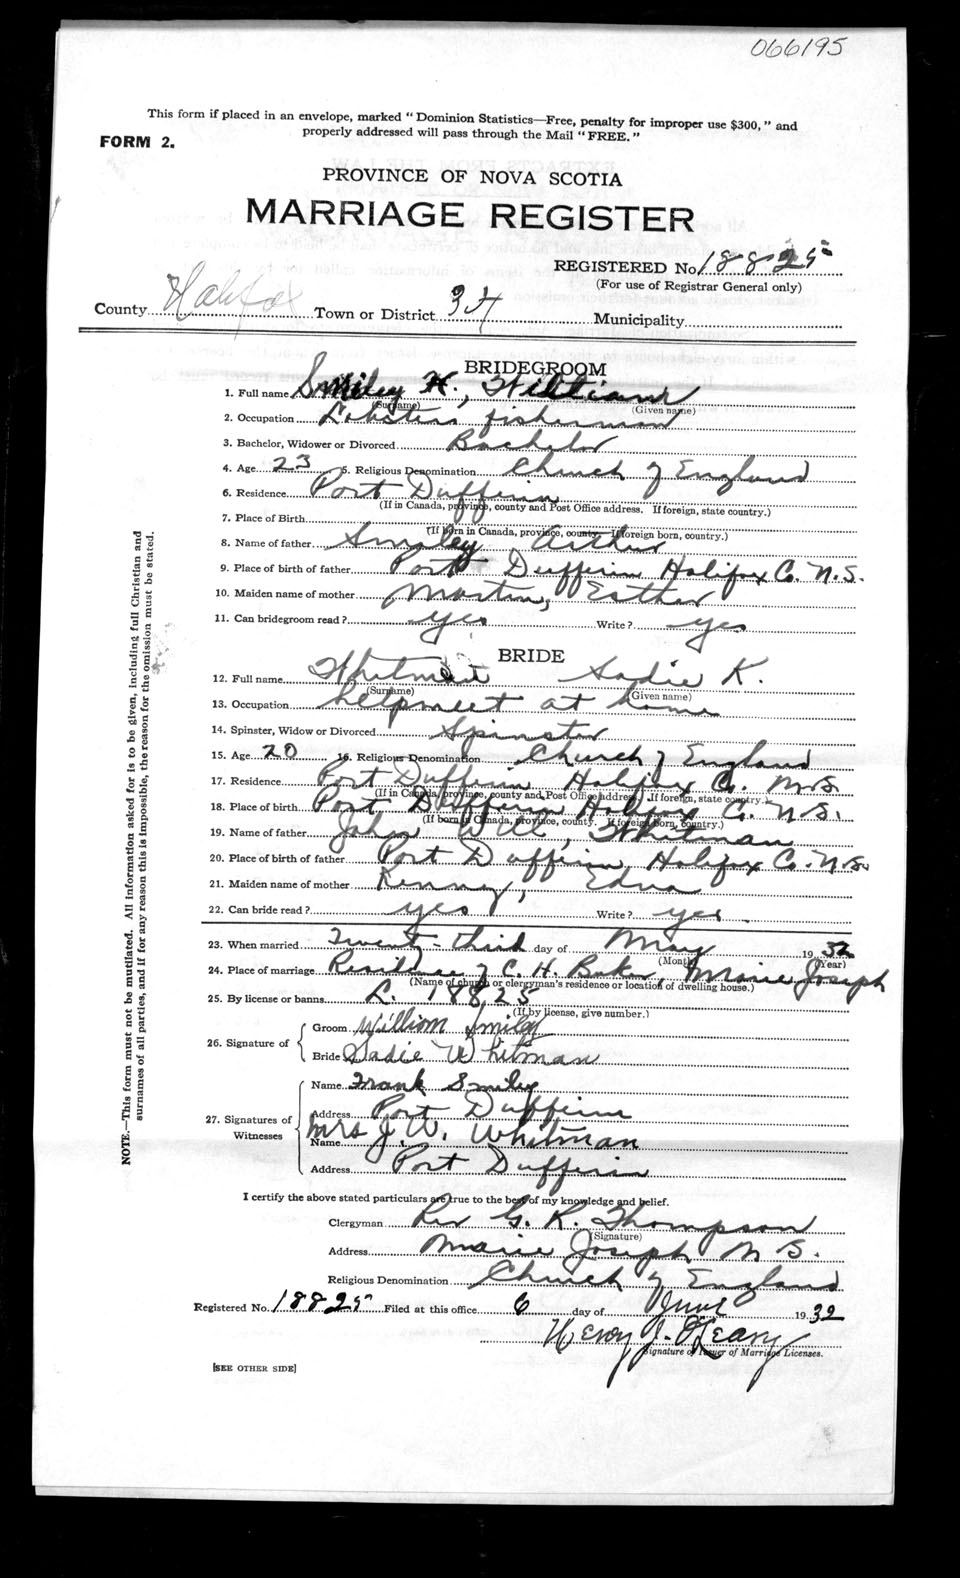 066195
This form if placed in an envelope, marked "Dominion Statistics—Free, penalty for improper use $300," and
properly addressed will pass through the Mail "FREE."
FORM 2.
PROVINCE OF NOVA SCOTIA
MARRIAGE REGISTER
REGISTERED No. 18825
(For use of Registrar General only)
County Halifax Town or District 34 Municipality
BRIDEGROOM
1. Full name Smiley H., William
(Surname) (Given name)
2. Occupation Lobster fisherman
3. Bachelor, Widower or Divorced Bachelor
4. Age 23 5. Religious Denomination Church of England
6. Residence Port Dufferin
(If in Canada, province, county and Post Office address. If foreign, state country.)
7. Place of Birth
(If born in Canada, province, county. If foreign born, country.)
8. Name of father Smiley Arthur
9. Place of birth of father Port Dufferin Halifax Co. N.S.
10. Maiden name of mother Martin, Esther
11. Can bridegroom read? yes Write? yes
BRIDE
12. Full name Whitman Sadie K.
(Surname) (Given name)
13. Occupation helpmeet at home
14. Spinster, Widow or Divorced Spinster
15. Age 20 16. Religious Denomination Church of England
17. Residence Port Dufferin Halifax Co. N.S.
(If in Canada, province, county and Post Office address. If foreign, state country.)
18. Place of birth Port Dufferin Halifax Co. N.S.
(If born in Canada, province, county. If foreign born, country.)
19. Name of father John Will, Whitman
20. Place of birth of father Port Dufferin, Halifax Co. N.S.
21. Maiden name of mother Kenney, Edna
22. Can bride read? yes Write? yes
23. When married Twenty-third day of May 1932
(Month) (Year)
24. Place of marriage Residence of C. H. Baker, Marie Joseph
(Name of church or clergyman's residence or location of dwelling house.)
25. By license or banns L. 18825
(If by license, give number.)
26. Signature of
Groom William Smiley
Bride Sadie Whitman
27. Signatures of Witnesses
Name Frank Smiley
Address Port Dufferin
Name Mrs J. W. Whitman
Address Port Dufferin
I certify the above stated particulars are true to the best of my knowledge and belief.
Clergyman Rev G. R. Thompson
(Signature)
Address Marie Joseph N S.
Religious Denomination Church of England
Registered No. 18825 Filed at this office 6 day of June 1932
Henry J. O'Leary
Signature of Issuer of Marriage Licenses.
[SEE OTHER SIDE]
NOTE.—This form must not be mutilated. All information asked for is to be given, including full Christian and
surnames of all parties, and if for any reason this is impossible, the reason for the omission must be stated.